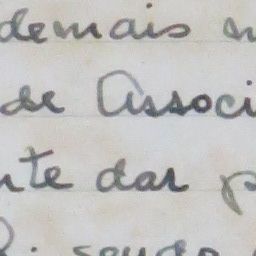 demais
de Associ
nte dar p
sendo